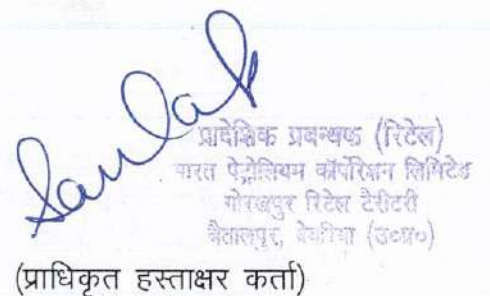 प्रादेशिक प्रबन्धक (रिटेल)
भारत पेट्रोलियम कॉर्पोरेशन लिमिटेड
गोरखपुर रिटेल टैरीटरी
बैतालपुर, देवरिया (उ०प्र०)
(प्राधिकृत हस्ताक्षर कर्ता)